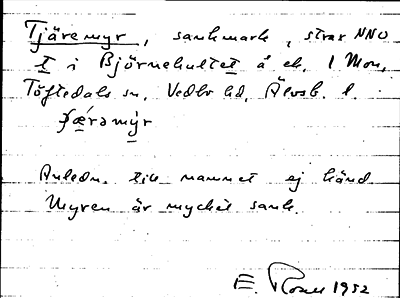 Tjäremyr, sankmark, strax NNO
t i Björnehultet å ek. 1 Mon,
Töftedals sn, Vedbo hd, Älvsb. l.
Anledn. till namnet ej känd
Myren är mycket sank.
E. 1952